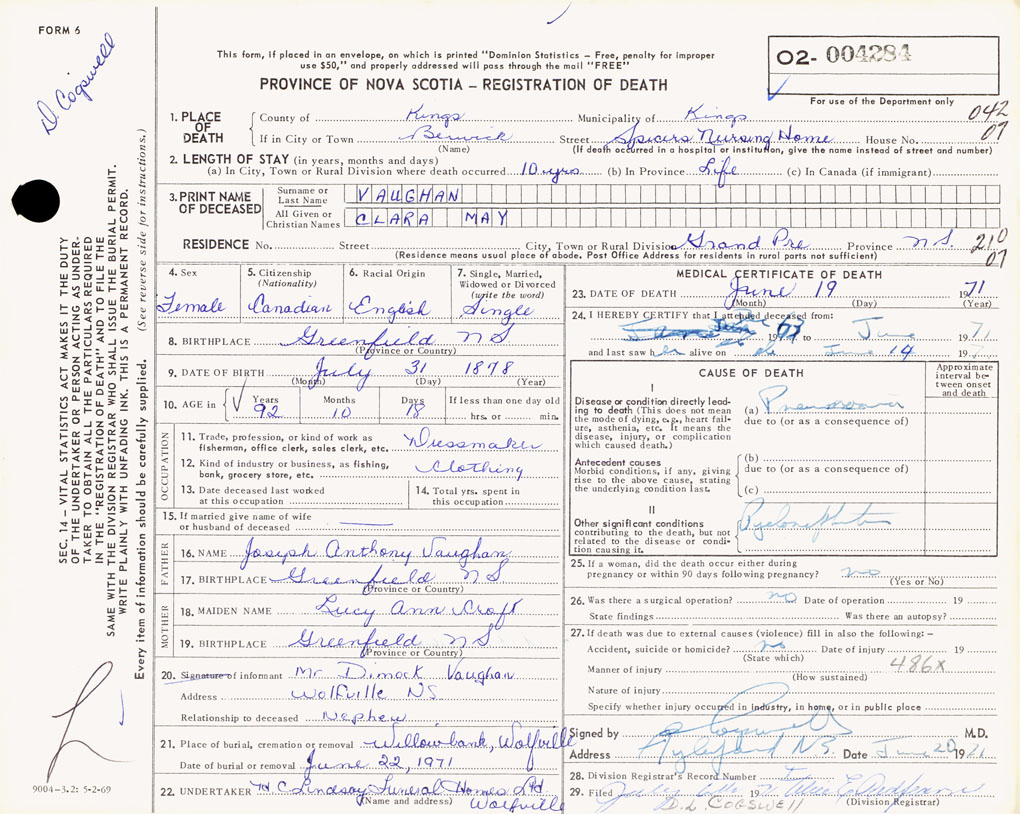 FORM 6
D. Cogswell
This form, if placed in an envelope, on which is printed "Dominion Statistics – Free, penalty for improper
use $50," and properly addressed will pass through the mail "FREE"
PROVINCE OF NOVA SCOTIA – REGISTRATION OF DEATH
O2- 004284
For use of the Department only
042
07
1. PLACE OF DEATH
County of Kings Municipality of Kings
If in City or Town Berwick Street Spicers Nursing Home House No.
(Name) (If death occurred in a hospital or institution, give the name instead of street and number)
2. LENGTH OF STAY (in years, months and days)
(a) In City, Town or Rural Division where death occurred 10 yrs (b) In Province Life (c) In Canada (if immigrant)
3. PRINT NAME OF DECEASED
Surname or Last Name VAUGHAN
All Given or Christian Names CLARA MAY
RESIDENCE No. Street City, Town or Rural Division Grand Pre Province N S. 210
(Residence means usual place of abode. Post Office Address for residents in rural parts not sufficient) 07
4. Sex Female
5. Citizenship (Nationality) Canadian
6. Racial Origin English
7. Single, Married, Widowed or Divorced (write the word) Single
8. BIRTHPLACE Greenfield N S
(Province or Country)
9. DATE OF BIRTH July 31 1878
(Month) (Day) (Year)
10. AGE in Years 92 Months 10 Days 18 If less than one day old
hrs. or min.
OCCUPATION
11. Trade, profession, or kind of work as
fisherman, office clerk, sales clerk, etc. Dressmaker
12. Kind of industry or business, as fishing,
bank, grocery store, etc. Clothing
13. Date deceased last worked
at this occupation
14. Total yrs. spent in
this occupation
15. If married give name of wife
or husband of deceased
FATHER
16. NAME Joseph Anthony Vaughan
17. BIRTHPLACE Greenfield N S
(Province or Country)
MOTHER
18. MAIDEN NAME Lucy Ann Croft
19. BIRTHPLACE Greenfield N S
(Province or Country)
20. Signature of informant Mr Dimock Vaughan
Address Wolfville NS
Relationship to deceased Nephew
21. Place of burial, cremation or removal Willowbank, Wolfville
Date of burial or removal June 22, 1971
22. UNDERTAKER H C Lindsay Funeral Homes Ltd
(Name and address) Wolfville
MEDICAL CERTIFICATE OF DEATH
23. DATE OF DEATH June 19 1971
(Month) (Day) (Year)
24. I HEREBY CERTIFY that I attended deceased from:
19 63 to June 1971
and last saw her alive on the June 14 19
CAUSE OF DEATH
Approximate interval between onset and death
I
Disease or condition directly leading
to death (This does not mean
the mode of dying, e.g., heart failure,
asthenia, etc. It means the
disease, injury, or complication
which caused death.)
(a) Pneumonia
due to (or as a consequence of)
Antecedent causes
Morbid conditions, if any, giving
rise to the above cause, stating
the underlying condition last.
(b)
due to (or as a consequence of)
(c)
II
Other significant conditions
contributing to the death, but not
related to the disease or condition
causing it.
25. If a woman, did the death occur either during
pregnancy or within 90 days following pregnancy? no
(Yes or No)
26. Was there a surgical operation? no Date of operation 19
State findings Was there an autopsy?
27. If death was due to external causes (violence) fill in also the following: –
Accident, suicide or homicide? no Date of injury 19
(State which)
486X
Manner of injury
(How sustained)
Nature of injury
Specify whether injury occurred in industry, in home, or in public place
Signed by Cogswell M.D.
Address Aylesford N.S. Date June 20 1971
28. Division Registrar's Record Number
29. Filed
(Division Registrar)
D. L. COGSWELL
SEC. 14 – VITAL STATISTICS ACT MAKES IT THE DUTY
OF THE UNDERTAKER OR PERSON ACTING AS UNDERTAKER
TO OBTAIN ALL THE PARTICULARS REQUIRED
IN THE "REGISTRATION OF DEATH" AND TO FILE THE
SAME WITH THE DIVISION REGISTRAR WHO SHALL ISSUE THE BURIAL PERMIT.
WRITE PLAINLY WITH UNFADING INK. THIS IS A PERMANENT RECORD.
Every item of information should be carefully supplied. (See reverse side for instructions.)
9004–3.2: 5-2-69